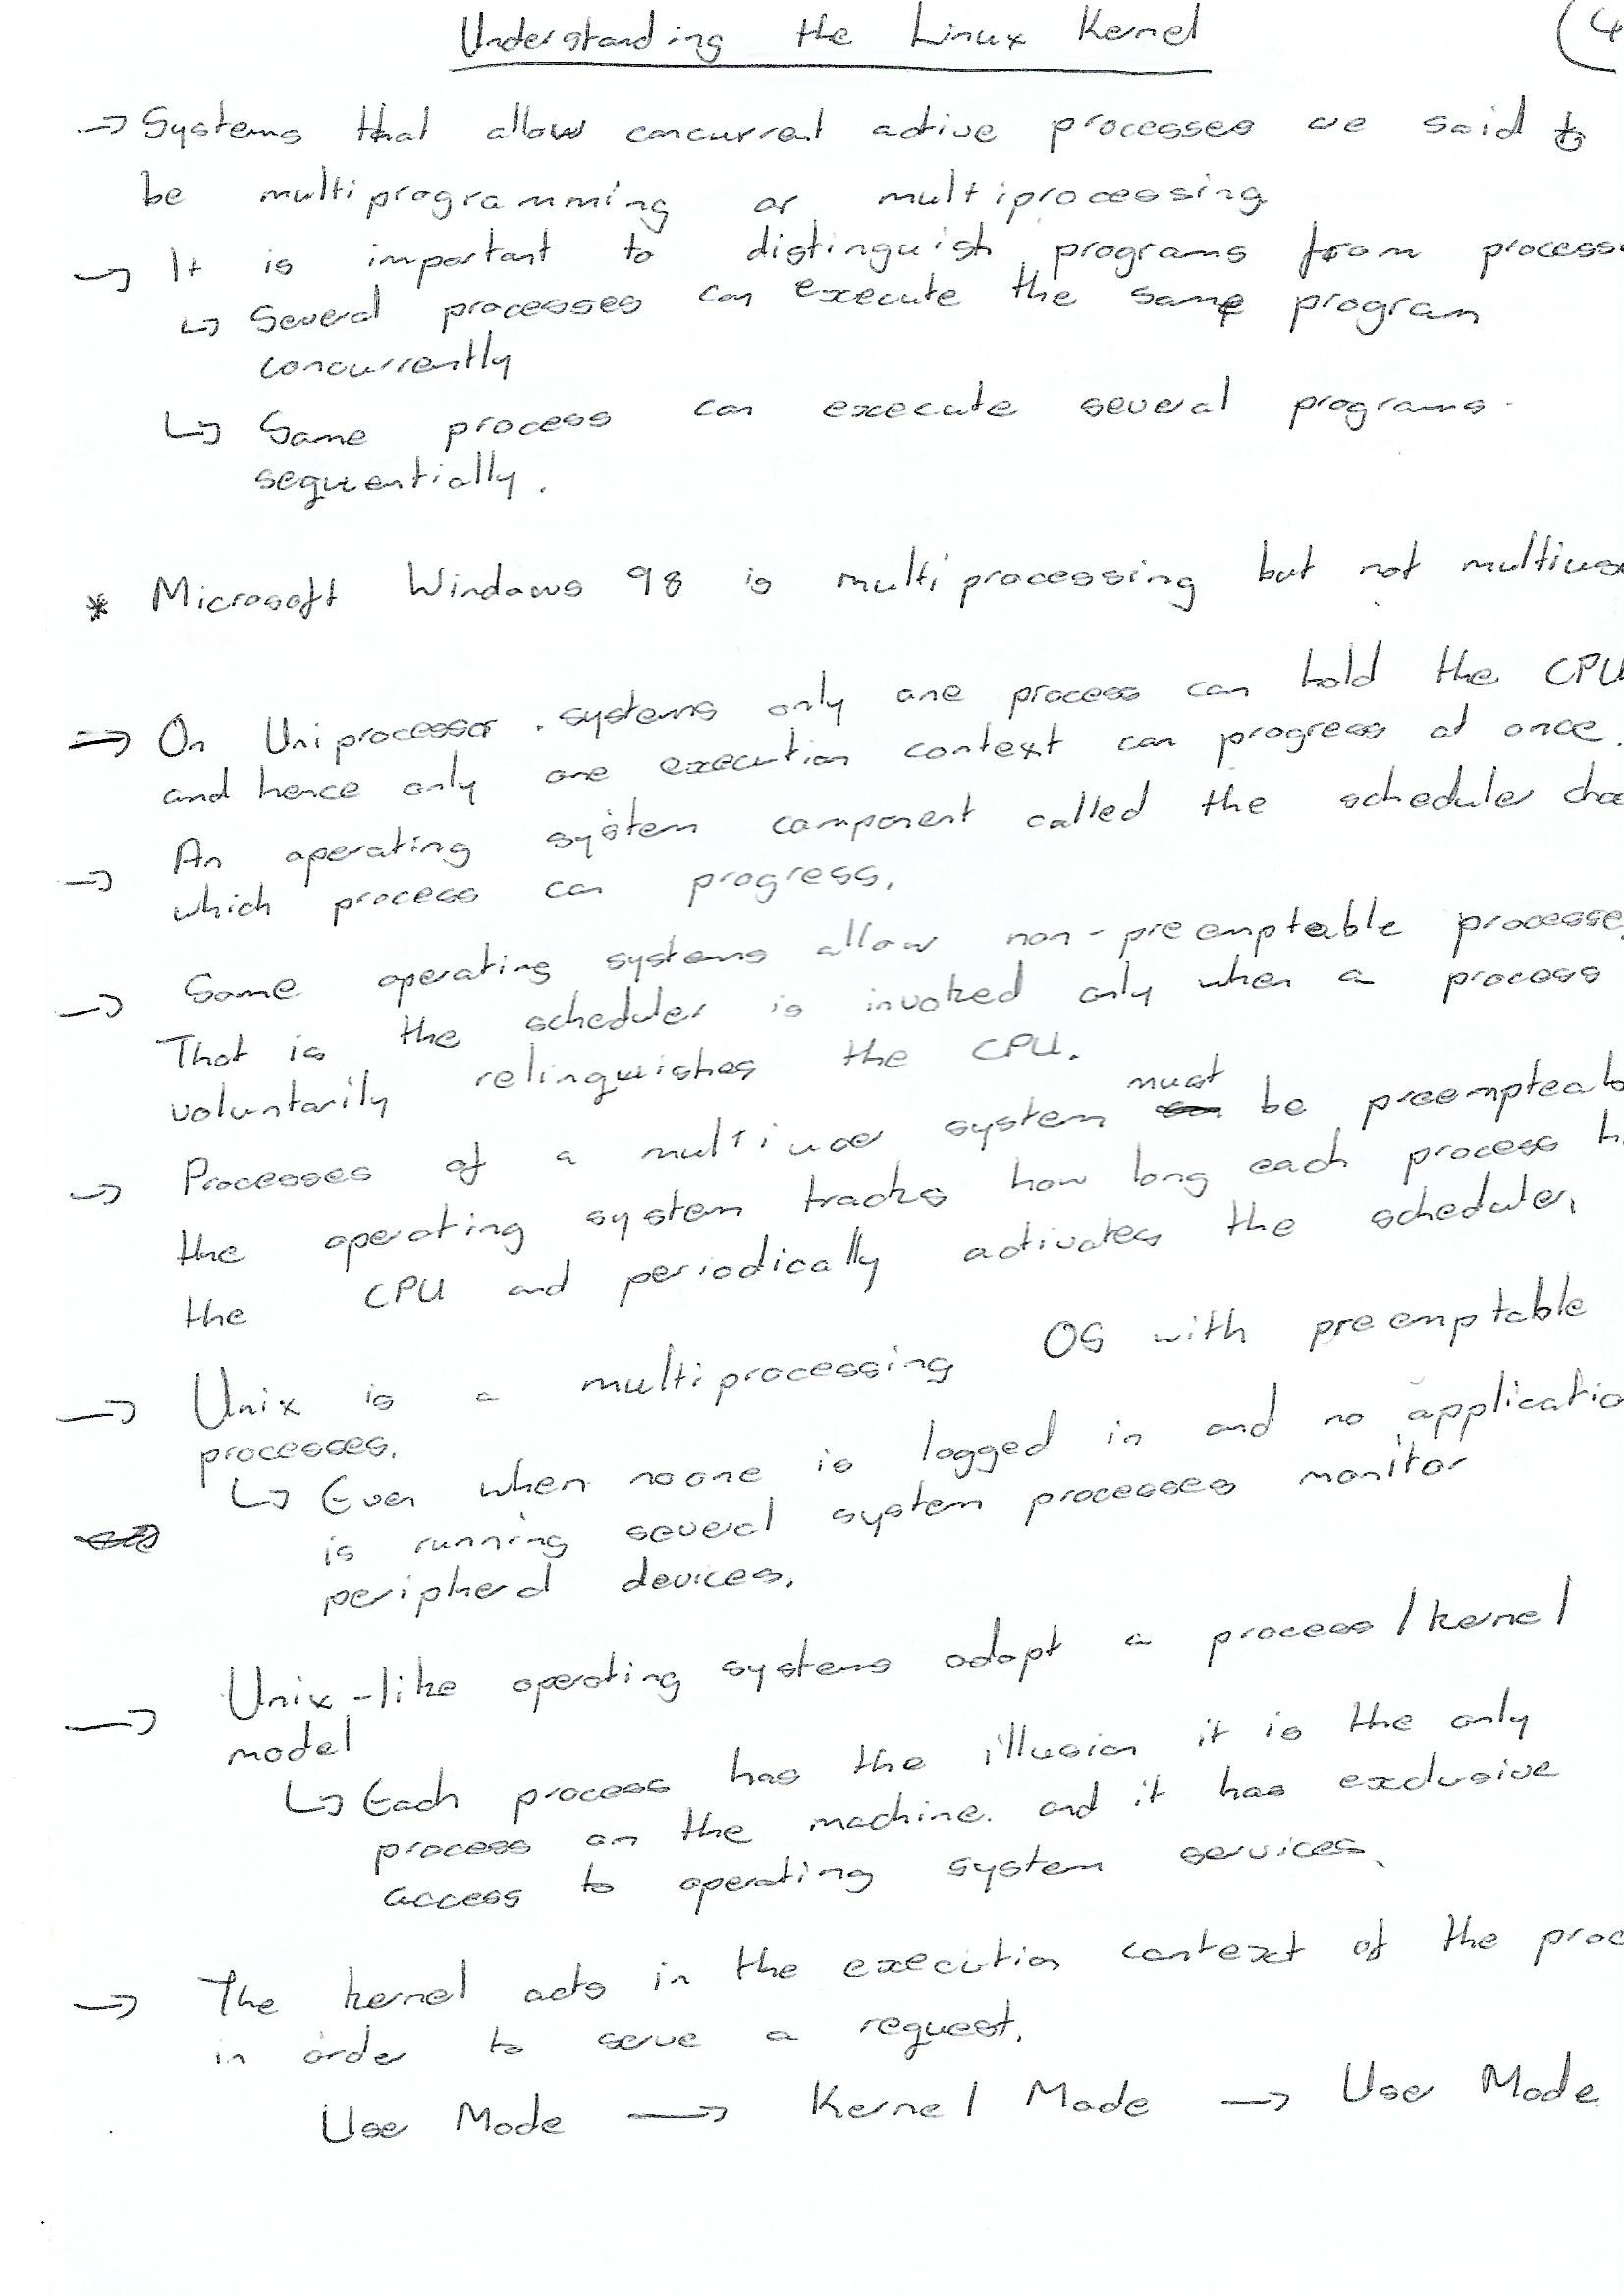 Understanding the Linux Kernel (4
→ Systems that allow concurrent active processes are said to
be multiprogramming or multiprocessing
→ It is important to distinguish programs from process
↳ Several processes can execute the same program
concurrently
↳ Same process can execute several programs.
sequentially.
* Microsoft Windows 98 is multiprocessing but not multius
→ On Uniprocessor systems only one process can hold the CPU
and hence only one execution context can progress at once.
→ An operating system component called the scheduler choo
which process can progress.
→ Some operating systems allow non-preemptable processes
That is the scheduler is invoked only when a process
voluntarily relinquishes the CPU.
→ Processes of a multiuser system must be preempteab
the operating system tracks how long each process h
the CPU and periodically activates the scheduler.
→ Unix is a multiprocessing OS with preemptable
processes.
↳ Even when noone is logged in and no applicatio
is running several system processes monitor
peripheral devices.
→ Unix-like operating systems adopt a process/kernel
model
↳ Each process has the illusion it is the only
process on the machine. and it has exclusive
access to operating system services.
→ The kernel acts in the execution context of the proc
in order to serve a request.
User Mode → Kernel Mode → User Mode.